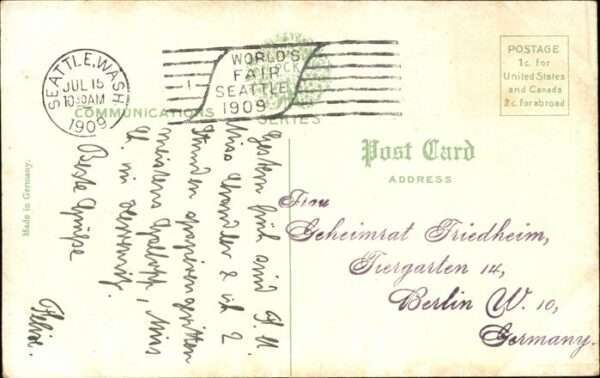 SEATTLE, WASH.
JUL 15
10 30 AM
1909
1
WORLD'S
FAIR
SEATTLE
1909
COMMUNICATIONS
SERIES
POSTAGE
1c. for
United States
and Canada
2c. for abroad
Post Card
ADDRESS
Made in Germany.
Gestern früh sind
Miss Chandler & ich 2
Stunden spazieren geritten
meistens Galopp,
in
Beste Grüsse
Felix.
Frau
Geheimrat Friedheim,
Tiergarten 14,
Berlin W. 10,
Germany.